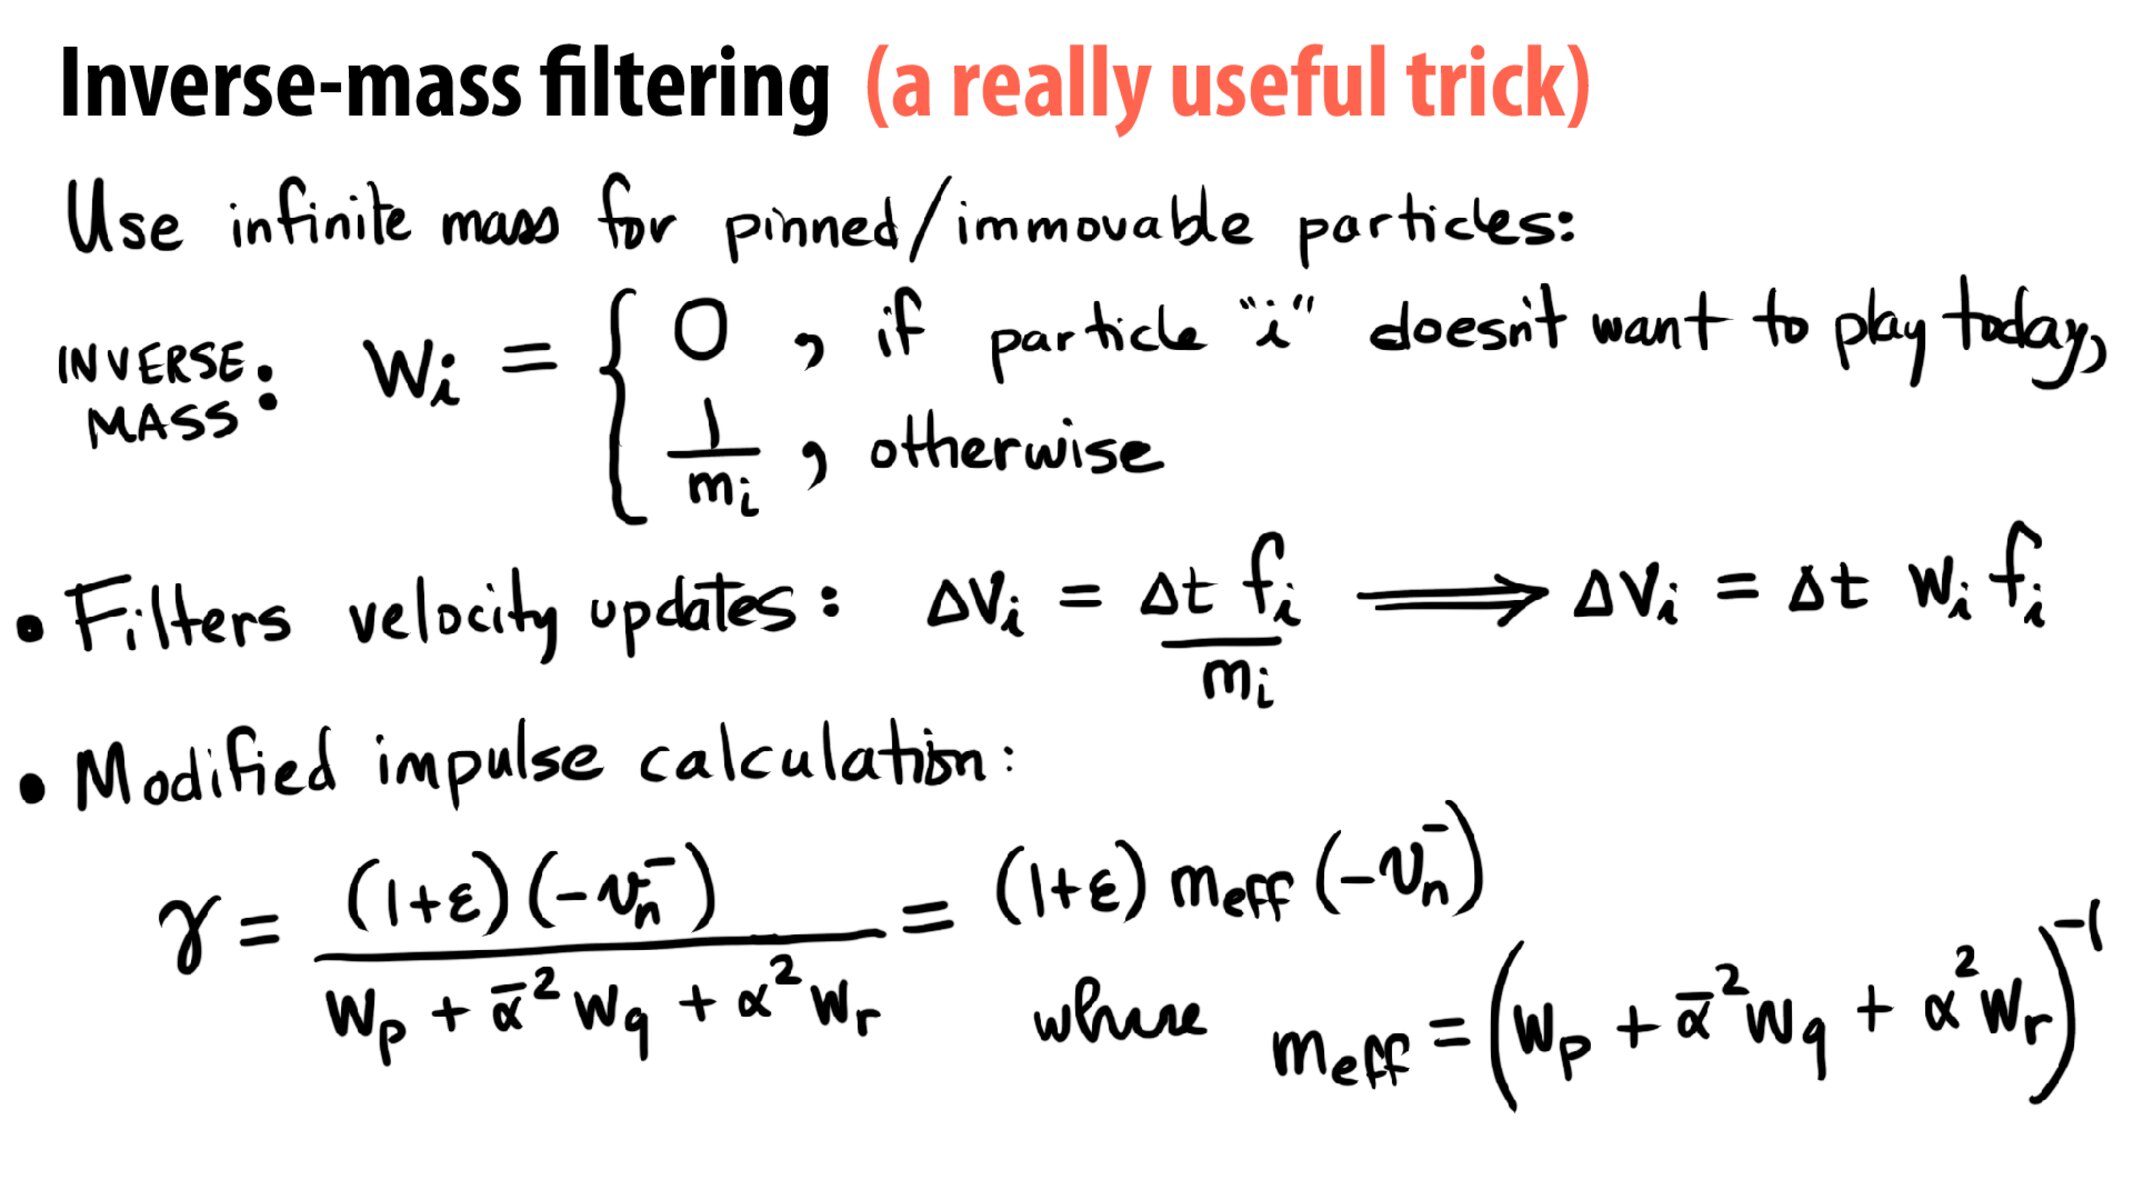 Inverse-mass filtering (a really useful trick)
Use infinite mass for pinned/immovable particles:
INVERSE MASS: Wi = { 0 , if particle "i" doesn't want to play today,
1/mi , otherwise
• Filters velocity updates: Δvi = Δt fi / mi ⟹ Δvi = Δt wi fi
• Modified impulse calculation:
γ = (1+ε)(-vn⁻) / (wp + ᾱ² wq + α² wr) = (1+ε) meff (-vn⁻)
where meff = (wp + ᾱ² wq + α² wr)⁻¹